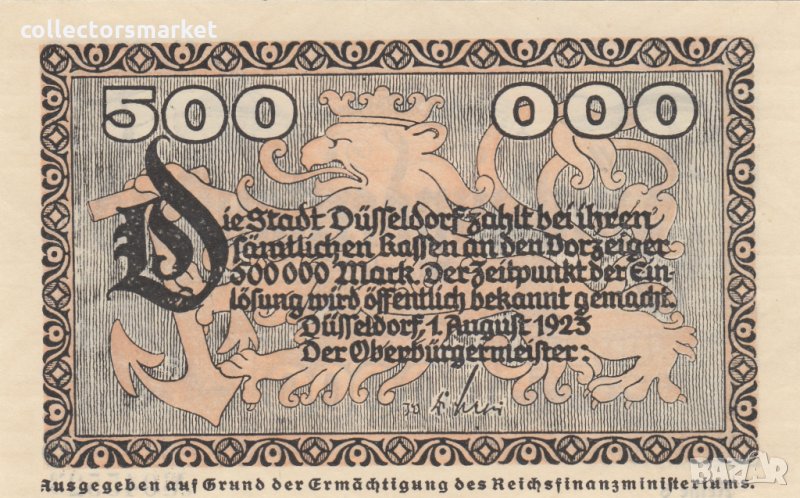 collectorsmarket
500 000
Die Stadt Düsseldorf zahlt bei ihren
sämtlichen Kassen an den Vorzeiger
500000 Mark. Der Zeitpunkt der Ein-
lösung wird öffentlich bekannt gemacht.
Düsseldorf, 1. August 1923
Der Oberbürgermeister:
Ausgegeben auf Grund der Ermächtigung des Reichsfinanzministeriums.
BAZAR